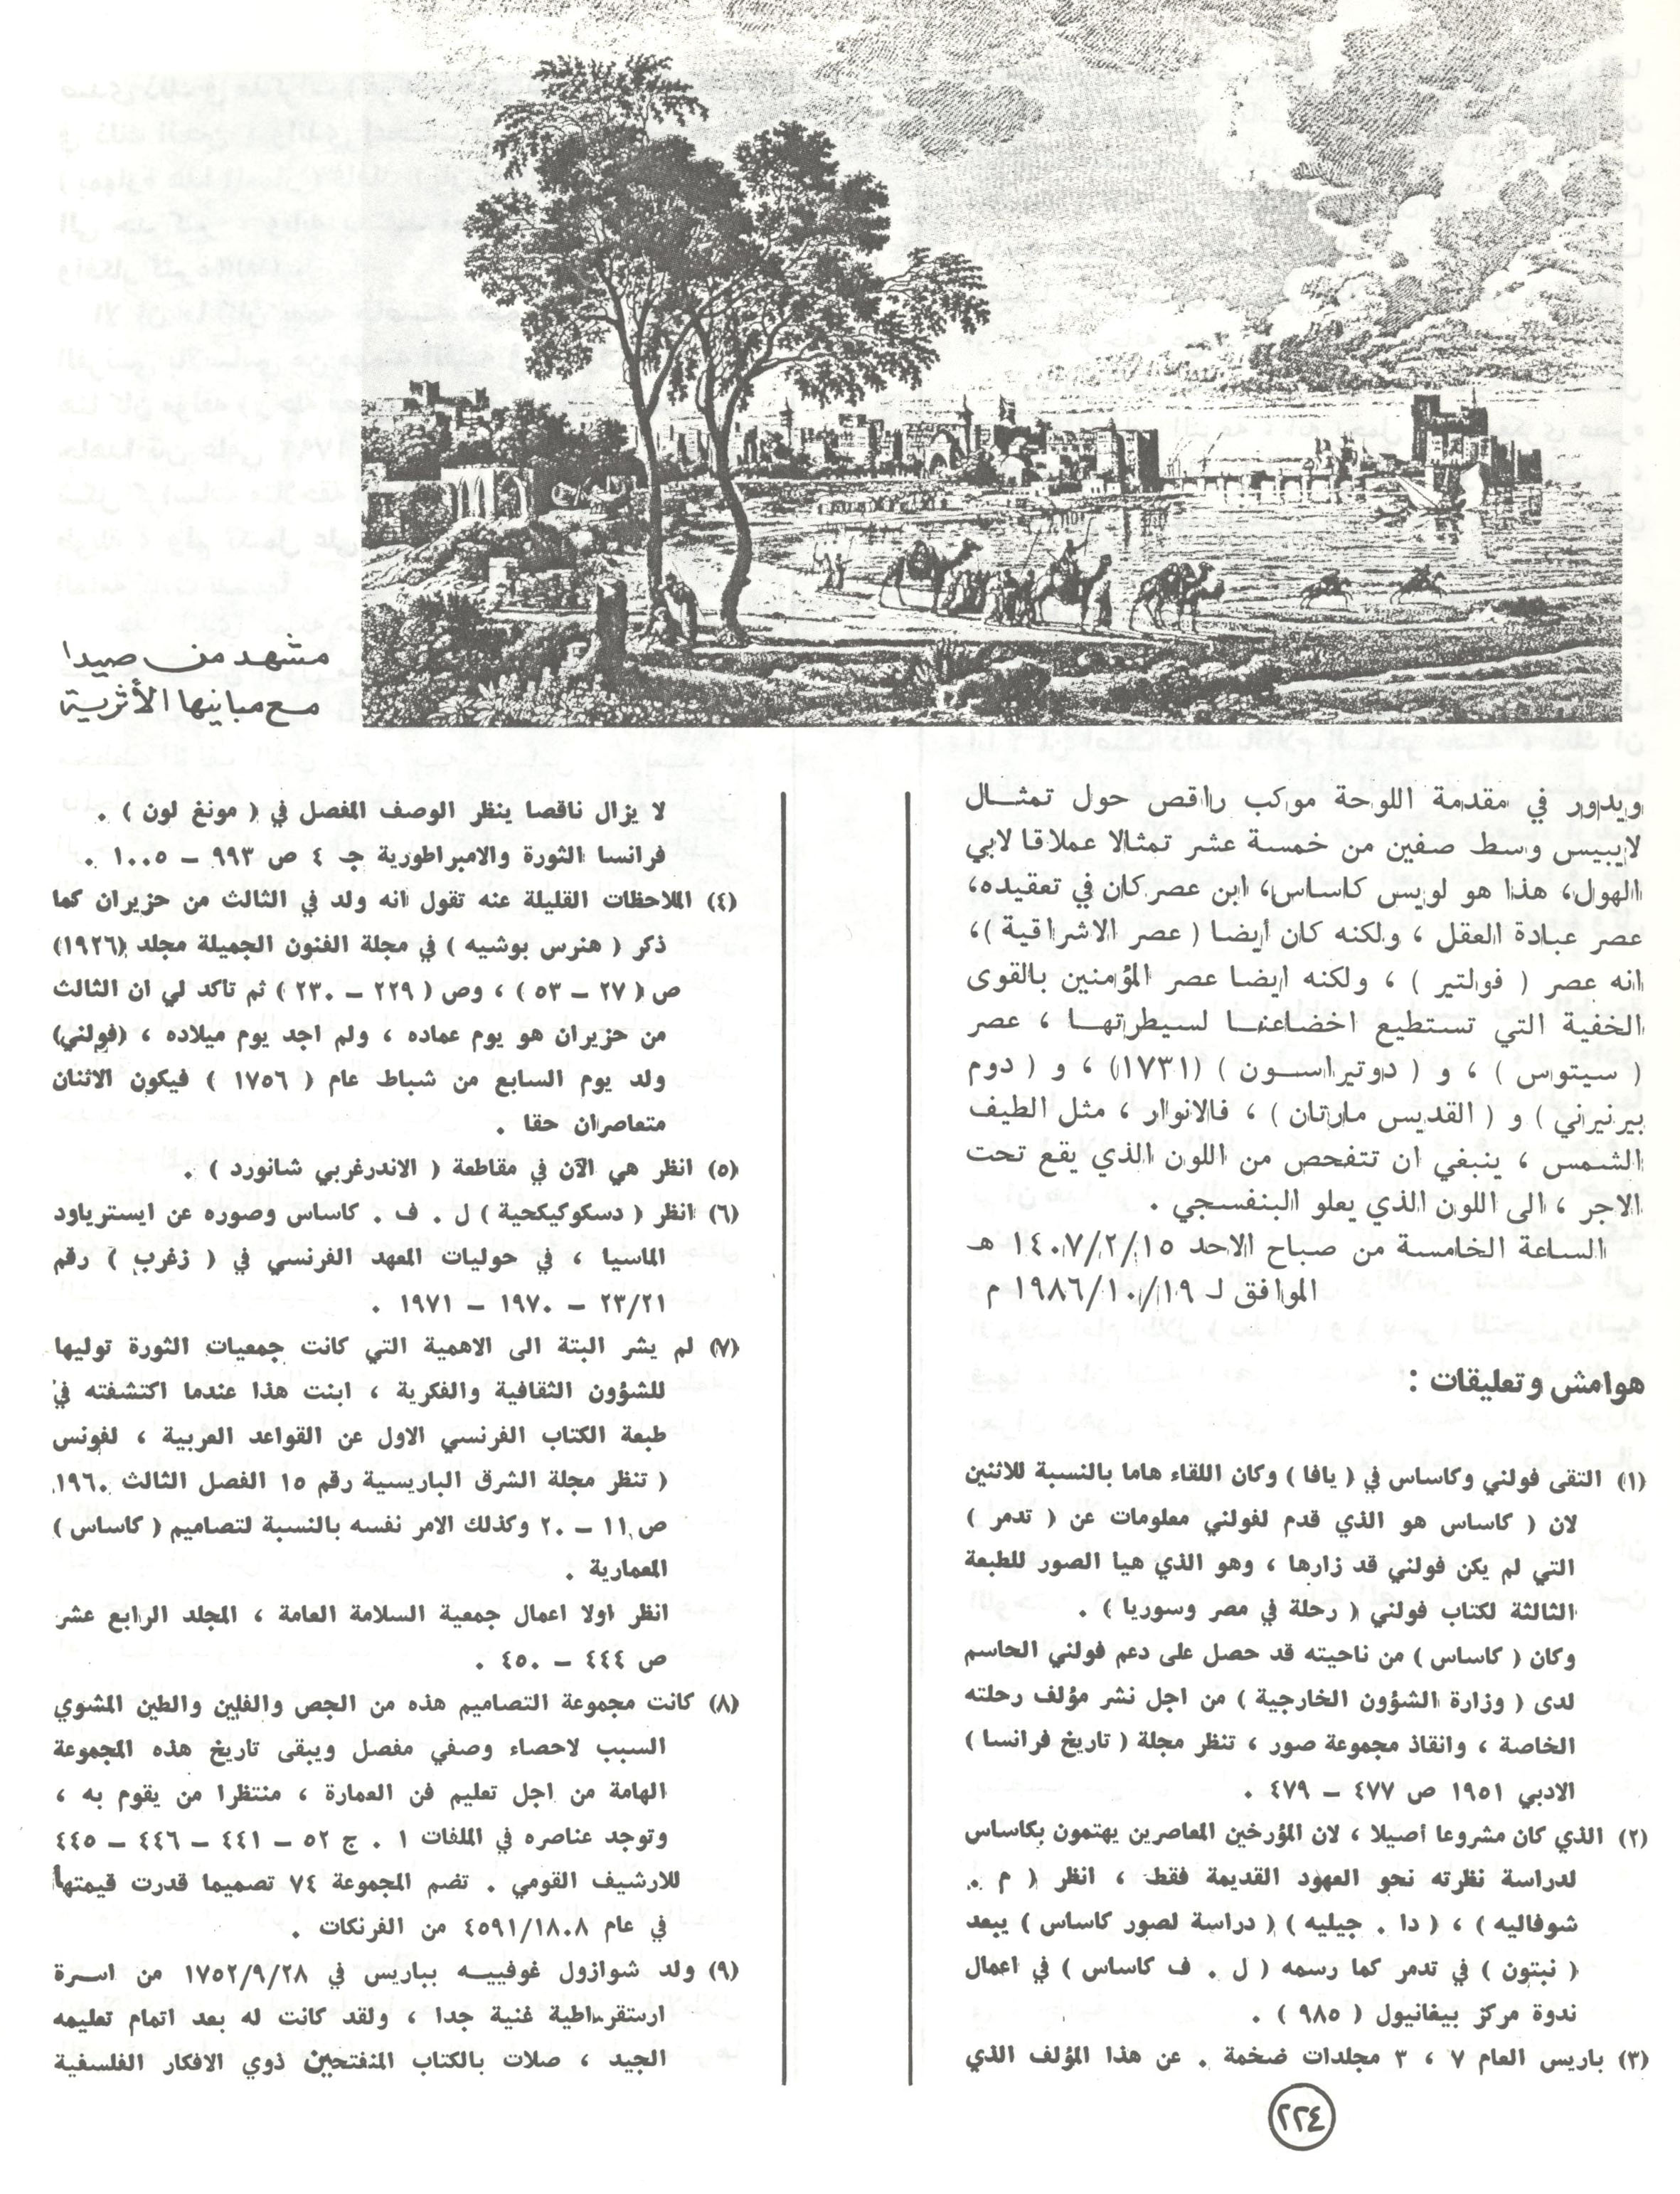 مشهد من صيدا
مع مبانيها الأثرية
ويدور في مقدمة اللوحة موكب راقص حول تمثــال
لايبيس وسط صفين من خمسة عشر تمثالا عملاقا لابي
الهول، هذا هو لويس كاساس، ابن عصر كان في تعقيده،
عصر عبادة العقل ، ولكنه كان أيضا ( عصر الاشراقية )،
انه عصر ( فولتير ) ، ولكنه ايضا عصر المؤمنين بالقوى
الخفية التي تستطيع اخضاعنــا لسيطرتهــا ، عصر
( سيتوس ) ، و ( دوتيراســون ) (١٧٣١) ، و ( دوم
بيرنيرني ) و ( القديس مارتان ) ، فالانوار ، مثل الطيف
الشمس ، ينبغي ان تتفحص من اللون الذي يقع تحت
الاجر ، الى اللون الذي يعلو البنفسجي .
الساعة الخامسة من صباح الاحد ١٤٠٧/٢/١٥ هـ
الموافق لـ ١٩٨٦/١٠/١٩ م
هوامش وتعليقات :
(١) التقى فولني وكاساس في ( يافا ) وكان اللقاء هاما بالنسبة للاثنين
لان ( كاساس هو الذي قدم لفولني معلومات عن ( تدمر )
التي لم يكن فولني قد زارها ، وهو الذي هيا الصور للطبعة
الثالثة لكتاب فولني ( رحلة في مصر وسوريا ) .
وكان ( كاساس ) من ناحيته قد حصل على دعم فولني الحاسم
لدى ( وزارة الشؤون الخارجية ) من اجل نشر مؤلف رحلته
الخاصة ، وانقاذ مجموعة صور ، تنظر مجلة ( تاريخ فرانسا )
الادبي ١٩٥١ ص ٤٧٧ – ٤٧٩ .
(٢) الذي كان مشروعا أصيلا ، لان المؤرخين المعاصرين يهتمون بكاساس
لدراسة نظرته نحو العهود القديمة فقط ، انظر ( م .
شوفاليه ) ، ( دا . جيليه ) ( دراسة لصور كاساس ) يبعد
( نبتون ) في تدمر كما رسمه ( ل . ف كاساس ) في اعمال
ندوة مركز بيغانيول ( ٩٨٥ ) .
(٣) باريس العام ٧ ، ٣ مجلدات ضخمة . عن هذا المؤلف الذي
لا يزال ناقصا ينظر الوصف المفصل في ( مونغ لون ) .
فرانسا الثورة والامبراطورية جـ ٤ ص ٩٩٣ – ١٠٠٥ .
(٤) الملاحظات القليلة عنه تقول انه ولد في الثالث من حزيران كما
ذكر ( هنرس بوشيه ) في مجلة الفنون الجميلة مجلد (١٩٢٦)
ص ( ٢٧ – ٥٣ ) ، وص ( ٢٢٩ – ٢٣٠ ) ثم تاكد لي ان الثالث
من حزيران هو يوم عماده ، ولم اجد يوم ميلاده ، (فولني)
ولد يوم السابع من شباط عام ( ١٧٥٦ ) فيكون الاثنان
متعاصران حقا .
(٥) انظر هي الآن في مقاطعة ( الاندرغربي شانورد ) .
(٦) انظر ( دسكوكيكحية ) ل . ف . كاساس وصوره عن ايسترياود
الماسيا ، في حوليات المعهد الفرنسي في ( زغرب ) رقم
٢٣/٢١ – ١٩٧٠ – ١٩٧١ .
(٧) لم يشر البتة الى الاهمية التي كانت جمعيات الثورة توليها
للشؤون الثقافية والفكرية ، ابنت هذا عندما اكتشفته في
طبعة الكتاب الفرنسي الاول عن القواعد العربية ، لفونس
( تنظر مجلة الشرق الباريسية رقم ١٥ الفصل الثالث ١٩٦٠
ص ١١ – ٢٠ وكذلك الامر نفسه بالنسبة لتصاميم ( كاساس )
المعمارية .
انظر اولا اعمال جمعية السلامة العامة ، المجلد الرابع عشر
ص ٤٤٤ – ٤٥٠ .
(٨) كانت مجموعة التصاميم هذه من الجص والفلين والطين المشوي
السبب لاحصاء وصفي مفصل ويبقى تاريخ هذه المجموعة
الهامة من اجل تعليم فن العمارة ، منتظرا من يقوم به ،
وتوجد عناصره في الملفات ١ . ج ٥٢ – ٤٤١ – ٤٤٦ – ٤٤٥
للارشيف القومي . تضم المجموعة ٧٤ تصميما قدرت قيمتها
في عام ٤٥٩١/١٨٠٨ من الفرنكات .
(٩) ولد شوازول غوفييـه بباريس في ١٧٥٢/٩/٢٨ من اسـرة
ارستقراطية غنية جدا ، ولقد كانت له بعد اتمام تعليمه
الجيد ، صلات بالكتاب المنفتحين ذوي الافكار الفلسفية
٢٢٤